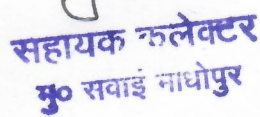 सहायक कलेक्टर
मु० सवाई माधोपुर